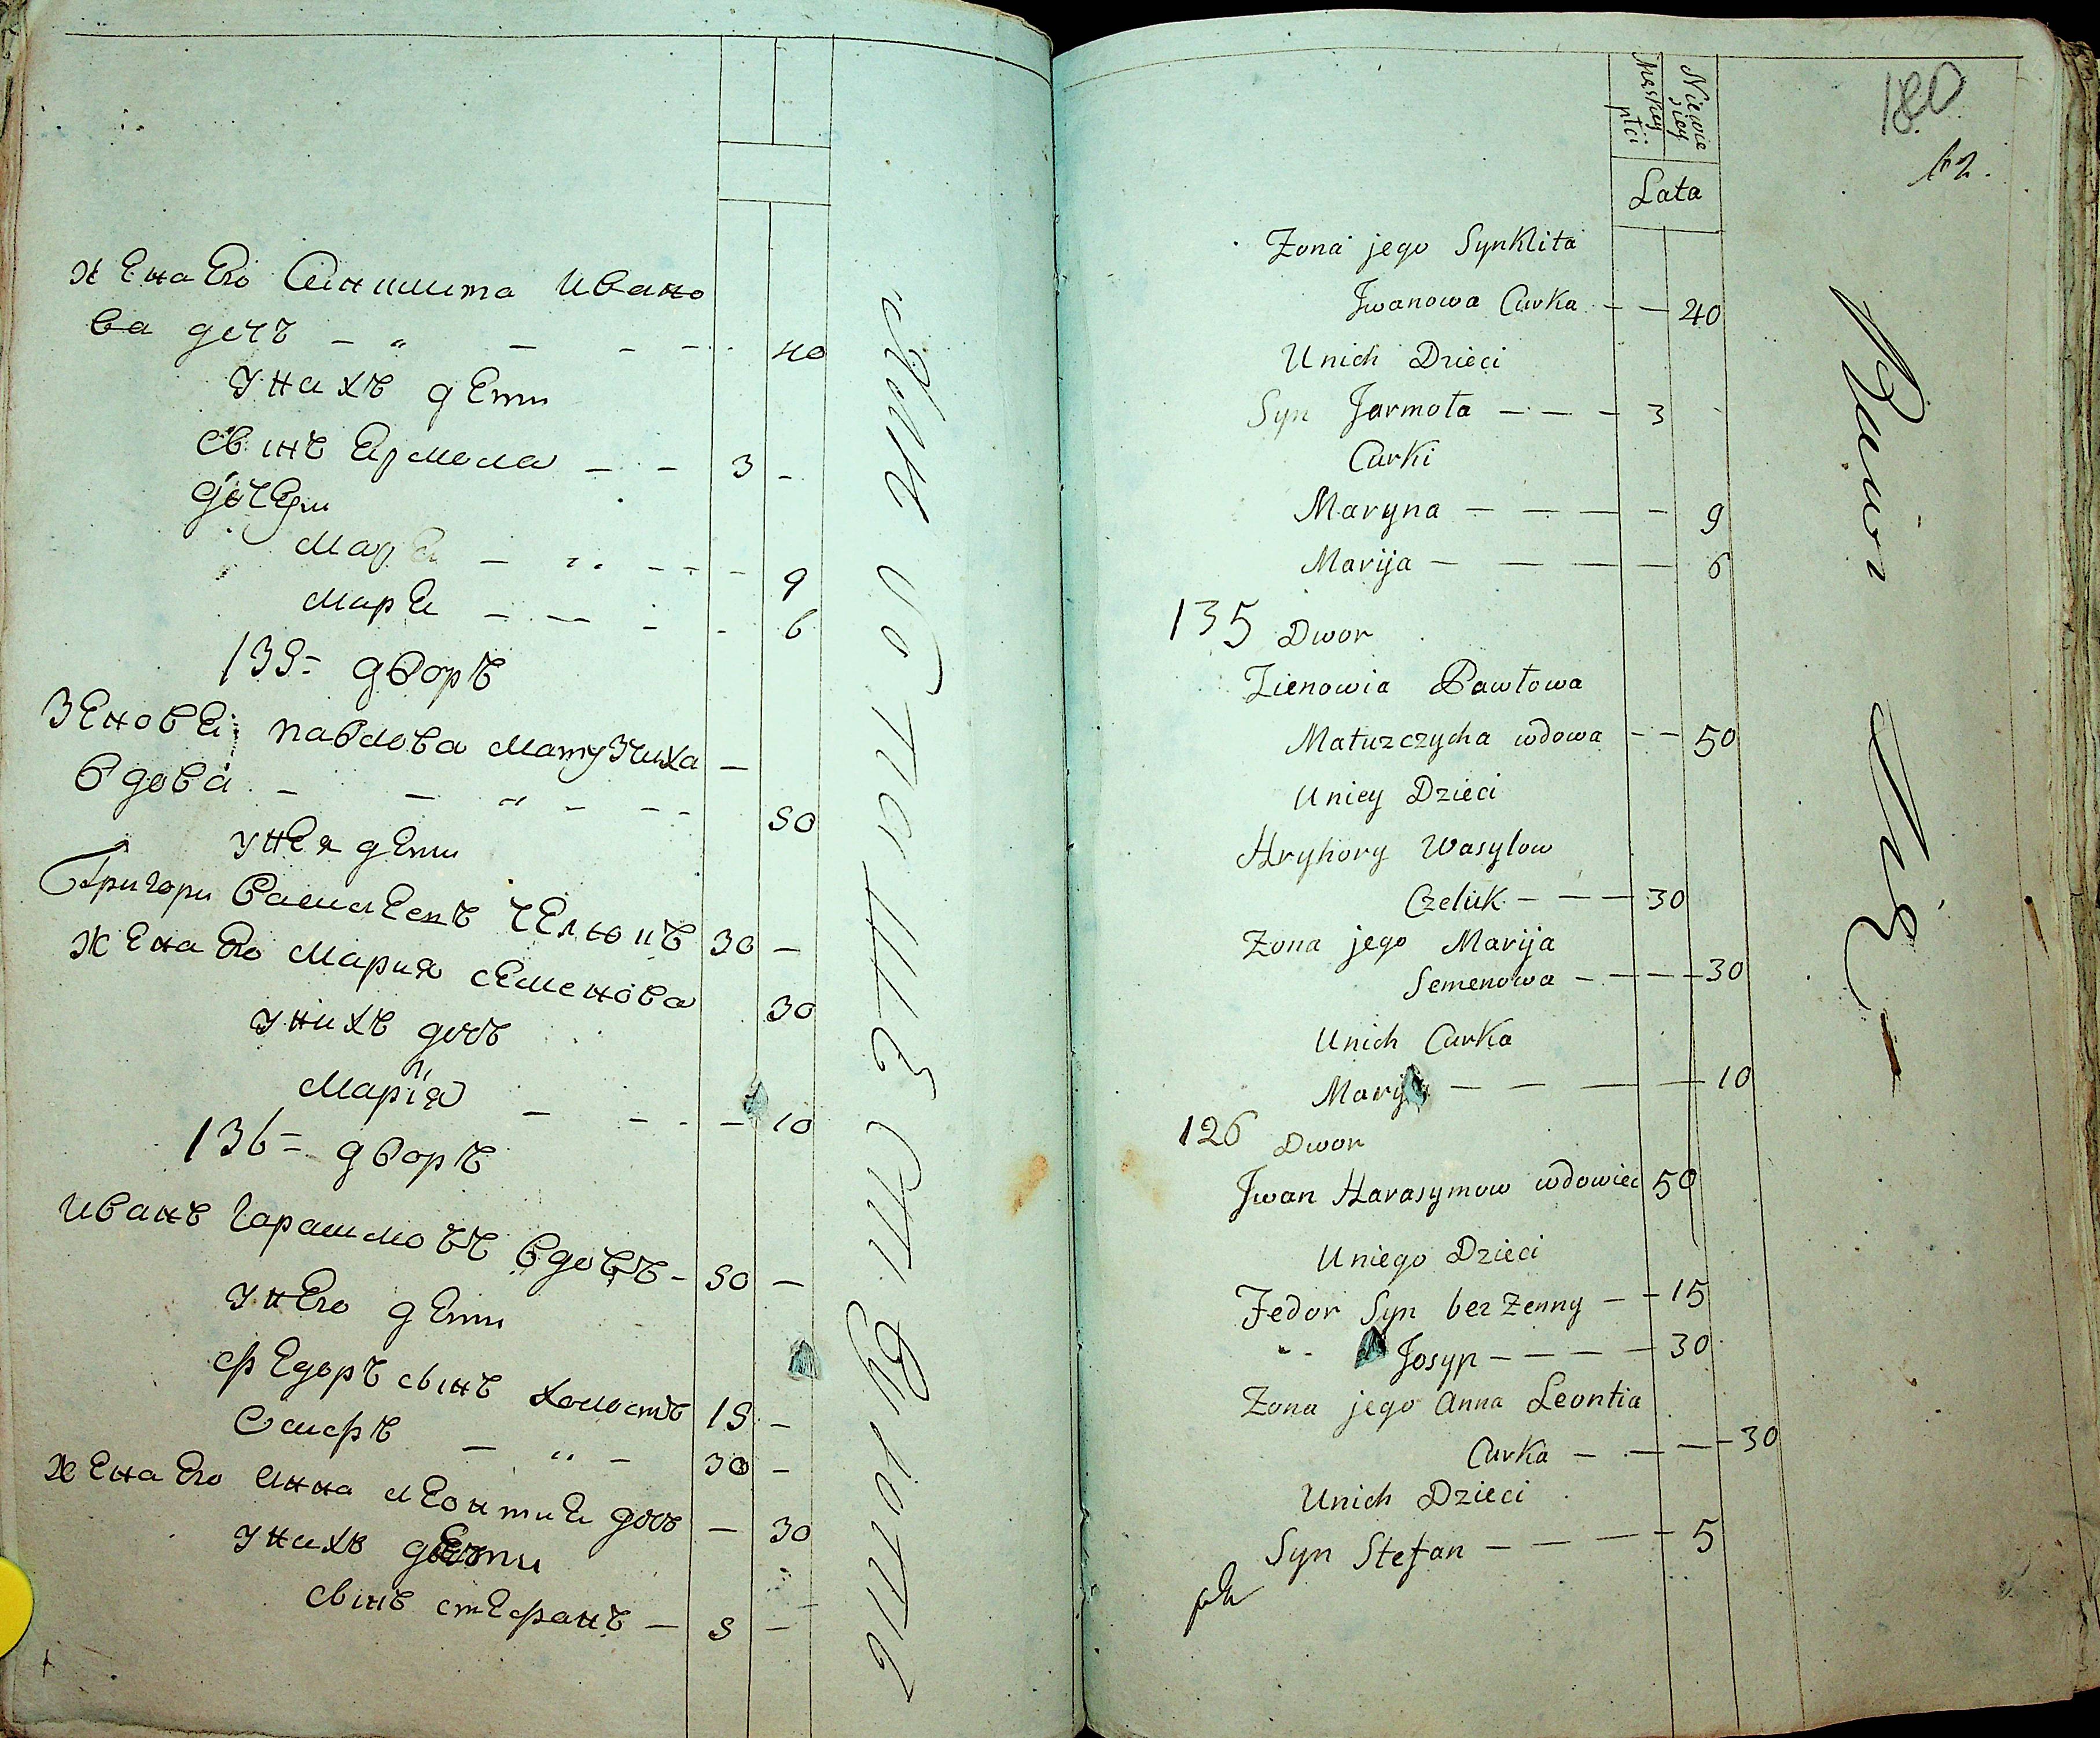 жена его Синклита Ивано
ва дочъ 40
у нихъ дети
сынъ Ярмола 3
дочери
Мар 9
Маря 6
135 дворъ
Зеновея Павлова Матузчиха
вдова 50
у нея дети
Григори Василевъ Челюкъ 30
жена его Мария Семенова 30
у нихъ дочъ
Мария 10
136 дворъ
Иванъ Гарасимовъ вдовъ 50
у него дети
Федоръ сынъ холостъ 15
Осифъ 30
жена его Анна Леонтия дочъ 30
у нихъ дети
сынъ Стефанъ 5
180
Męskiey płci
Niewieściey
Lata
Zona jego Synklita
Jwanowa Curka 40
Unich Dzieci
Syn Jarmoła 3
Curki
Maryna 9
Marija 6
135 Dwor
Zienowia Pawłowa
Matuzczycha wdowa 50
Uniey Dzieci
Hryhory Wasylow
Czeluk 30
Zona jego Marija
Semenowa 30
Unich Curka
Marija 10
126 Dwor
Jwan Harasymow wdowiec 50
Uniego Dzieci
Fedor Syn bez Zenny 15
" Josyp 30
Zona jego Anna Leontia
Curka 30
Unich Dzieci
Syn Stefan 5